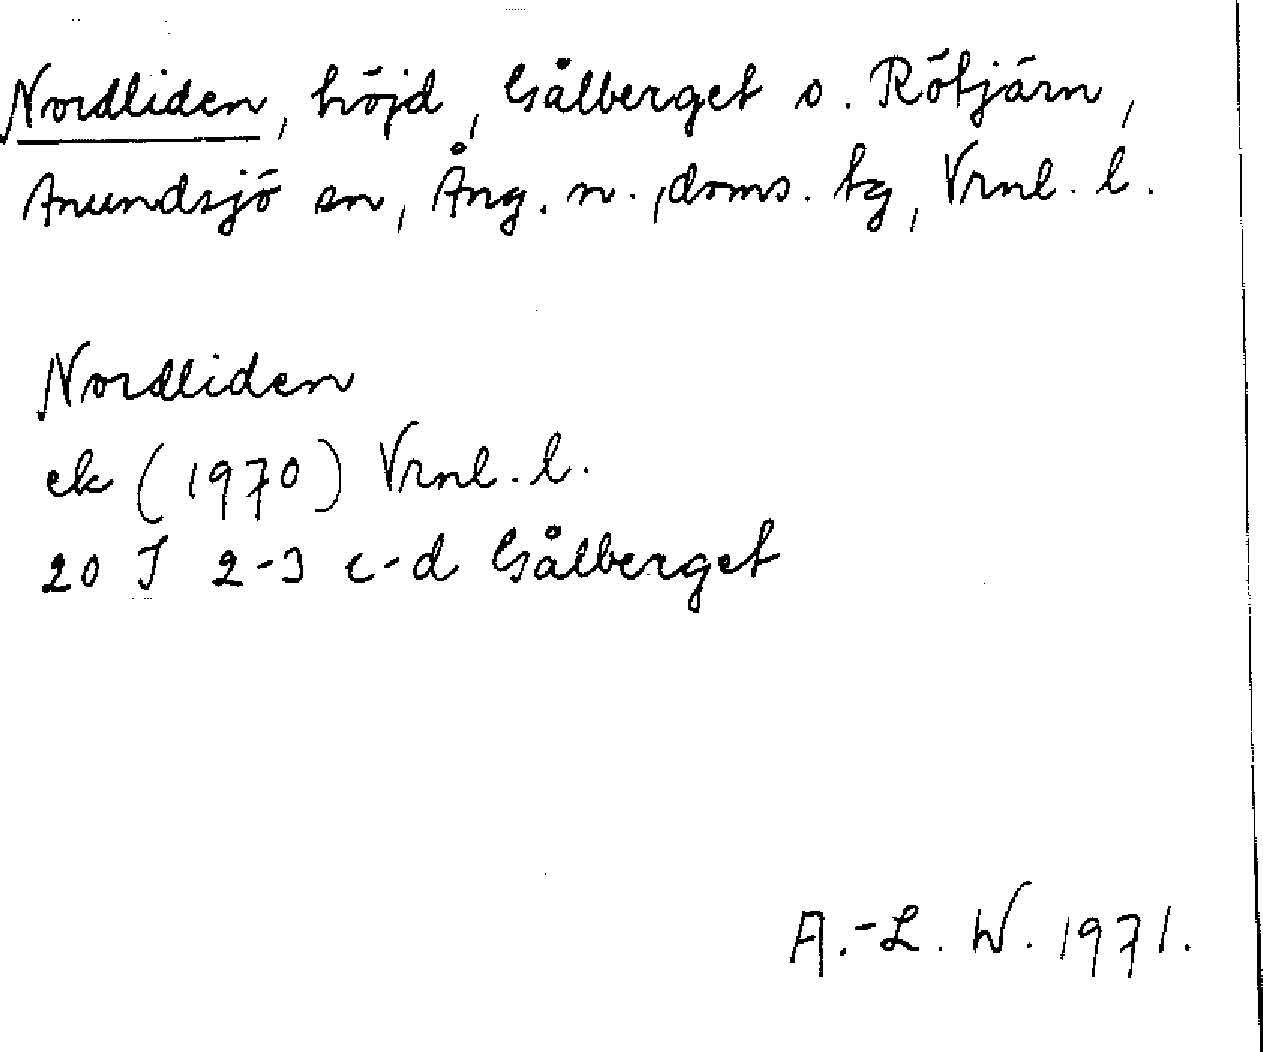 Nordliden, höjd, Gålberget o. Rötjärn,
Anundsjö sn, Ång. n., doms. tg, Vrnl. l.
Nordliden
ek (1970) Vrnl. l.
20 J 2-3 c-d Gålberget
A.-L. W. 1971.